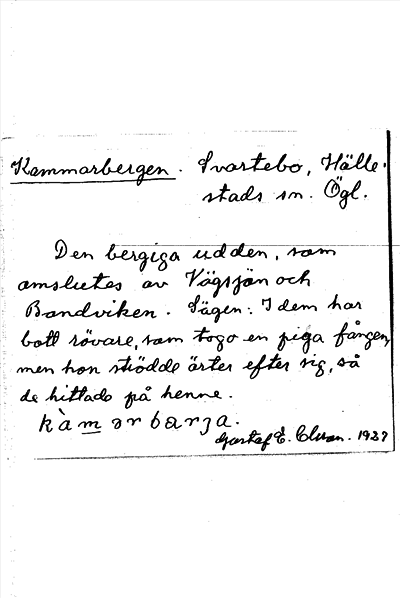 Kammarbergen. Svartebo, Hälle-
stads sn. Ögl.
Den bergiga udden, som
omslutes av Vägsjön och
Bandviken. Sägen: I dem har
bott rövare, som togo en piga fången,
men hon strödde ärter efter sig, så
de hittade på henne.
kàmərbarja.
Gustaf E. 1927